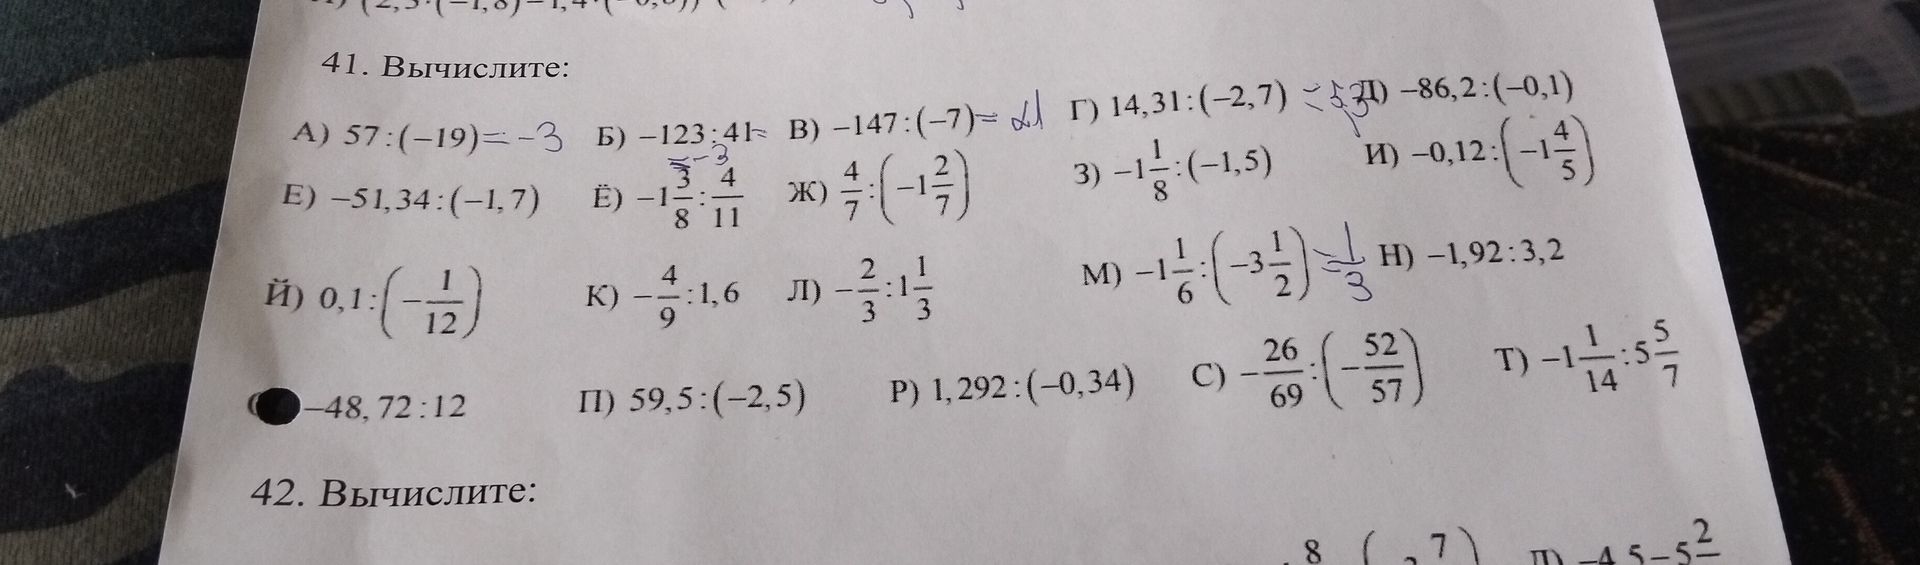 41. Вычислите:
А) 57:(−19)=−3 Б) −123:41= =−3 В) −147:(−7)=21 Г) 14,31:(−2,7) = 5,3 Д) −86,2:(−0,1)
Е) −51,34:(−1,7) Ё) −1 3/8 : 4/11 Ж) 4/7 : (−1 2/7) З) −1 1/8 : (−1,5) И) −0,12 : (−1 4/5)
Й) 0,1 : (−1/12) К) −4/9 : 1,6 Л) −2/3 : 1 1/3 М) −1 1/6 : (−3 1/2) = 1/3 Н) −1,92:3,2
−48,72:12 П) 59,5:(−2,5) Р) 1,292:(−0,34) С) −26/69 : (−52/57) Т) −1 1/14 : 5 5/7
42. Вычислите: